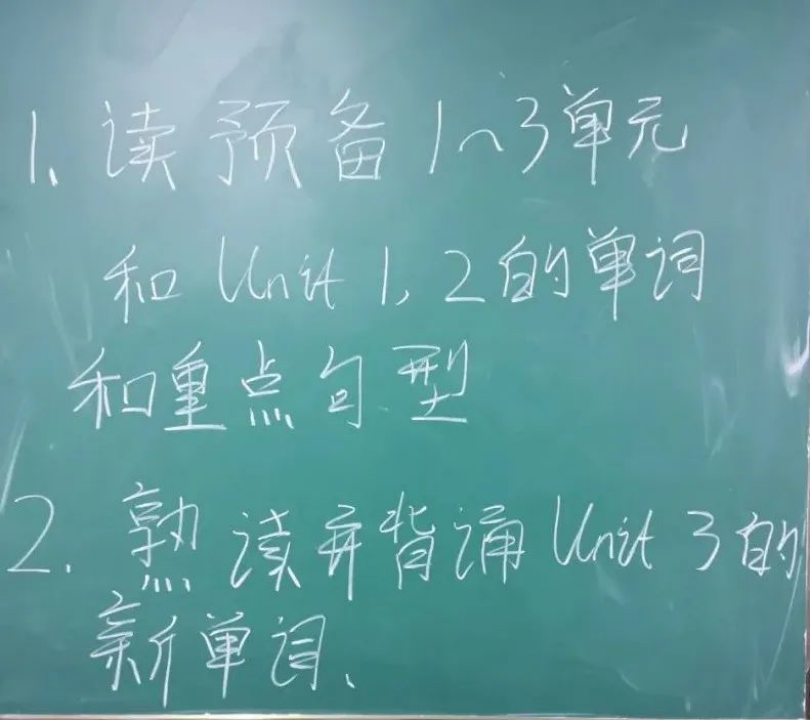 1、读预备1~3单元
和Unit 1, 2的单词
和重点句型
2. 熟读并背诵Unit 3的
新单词、